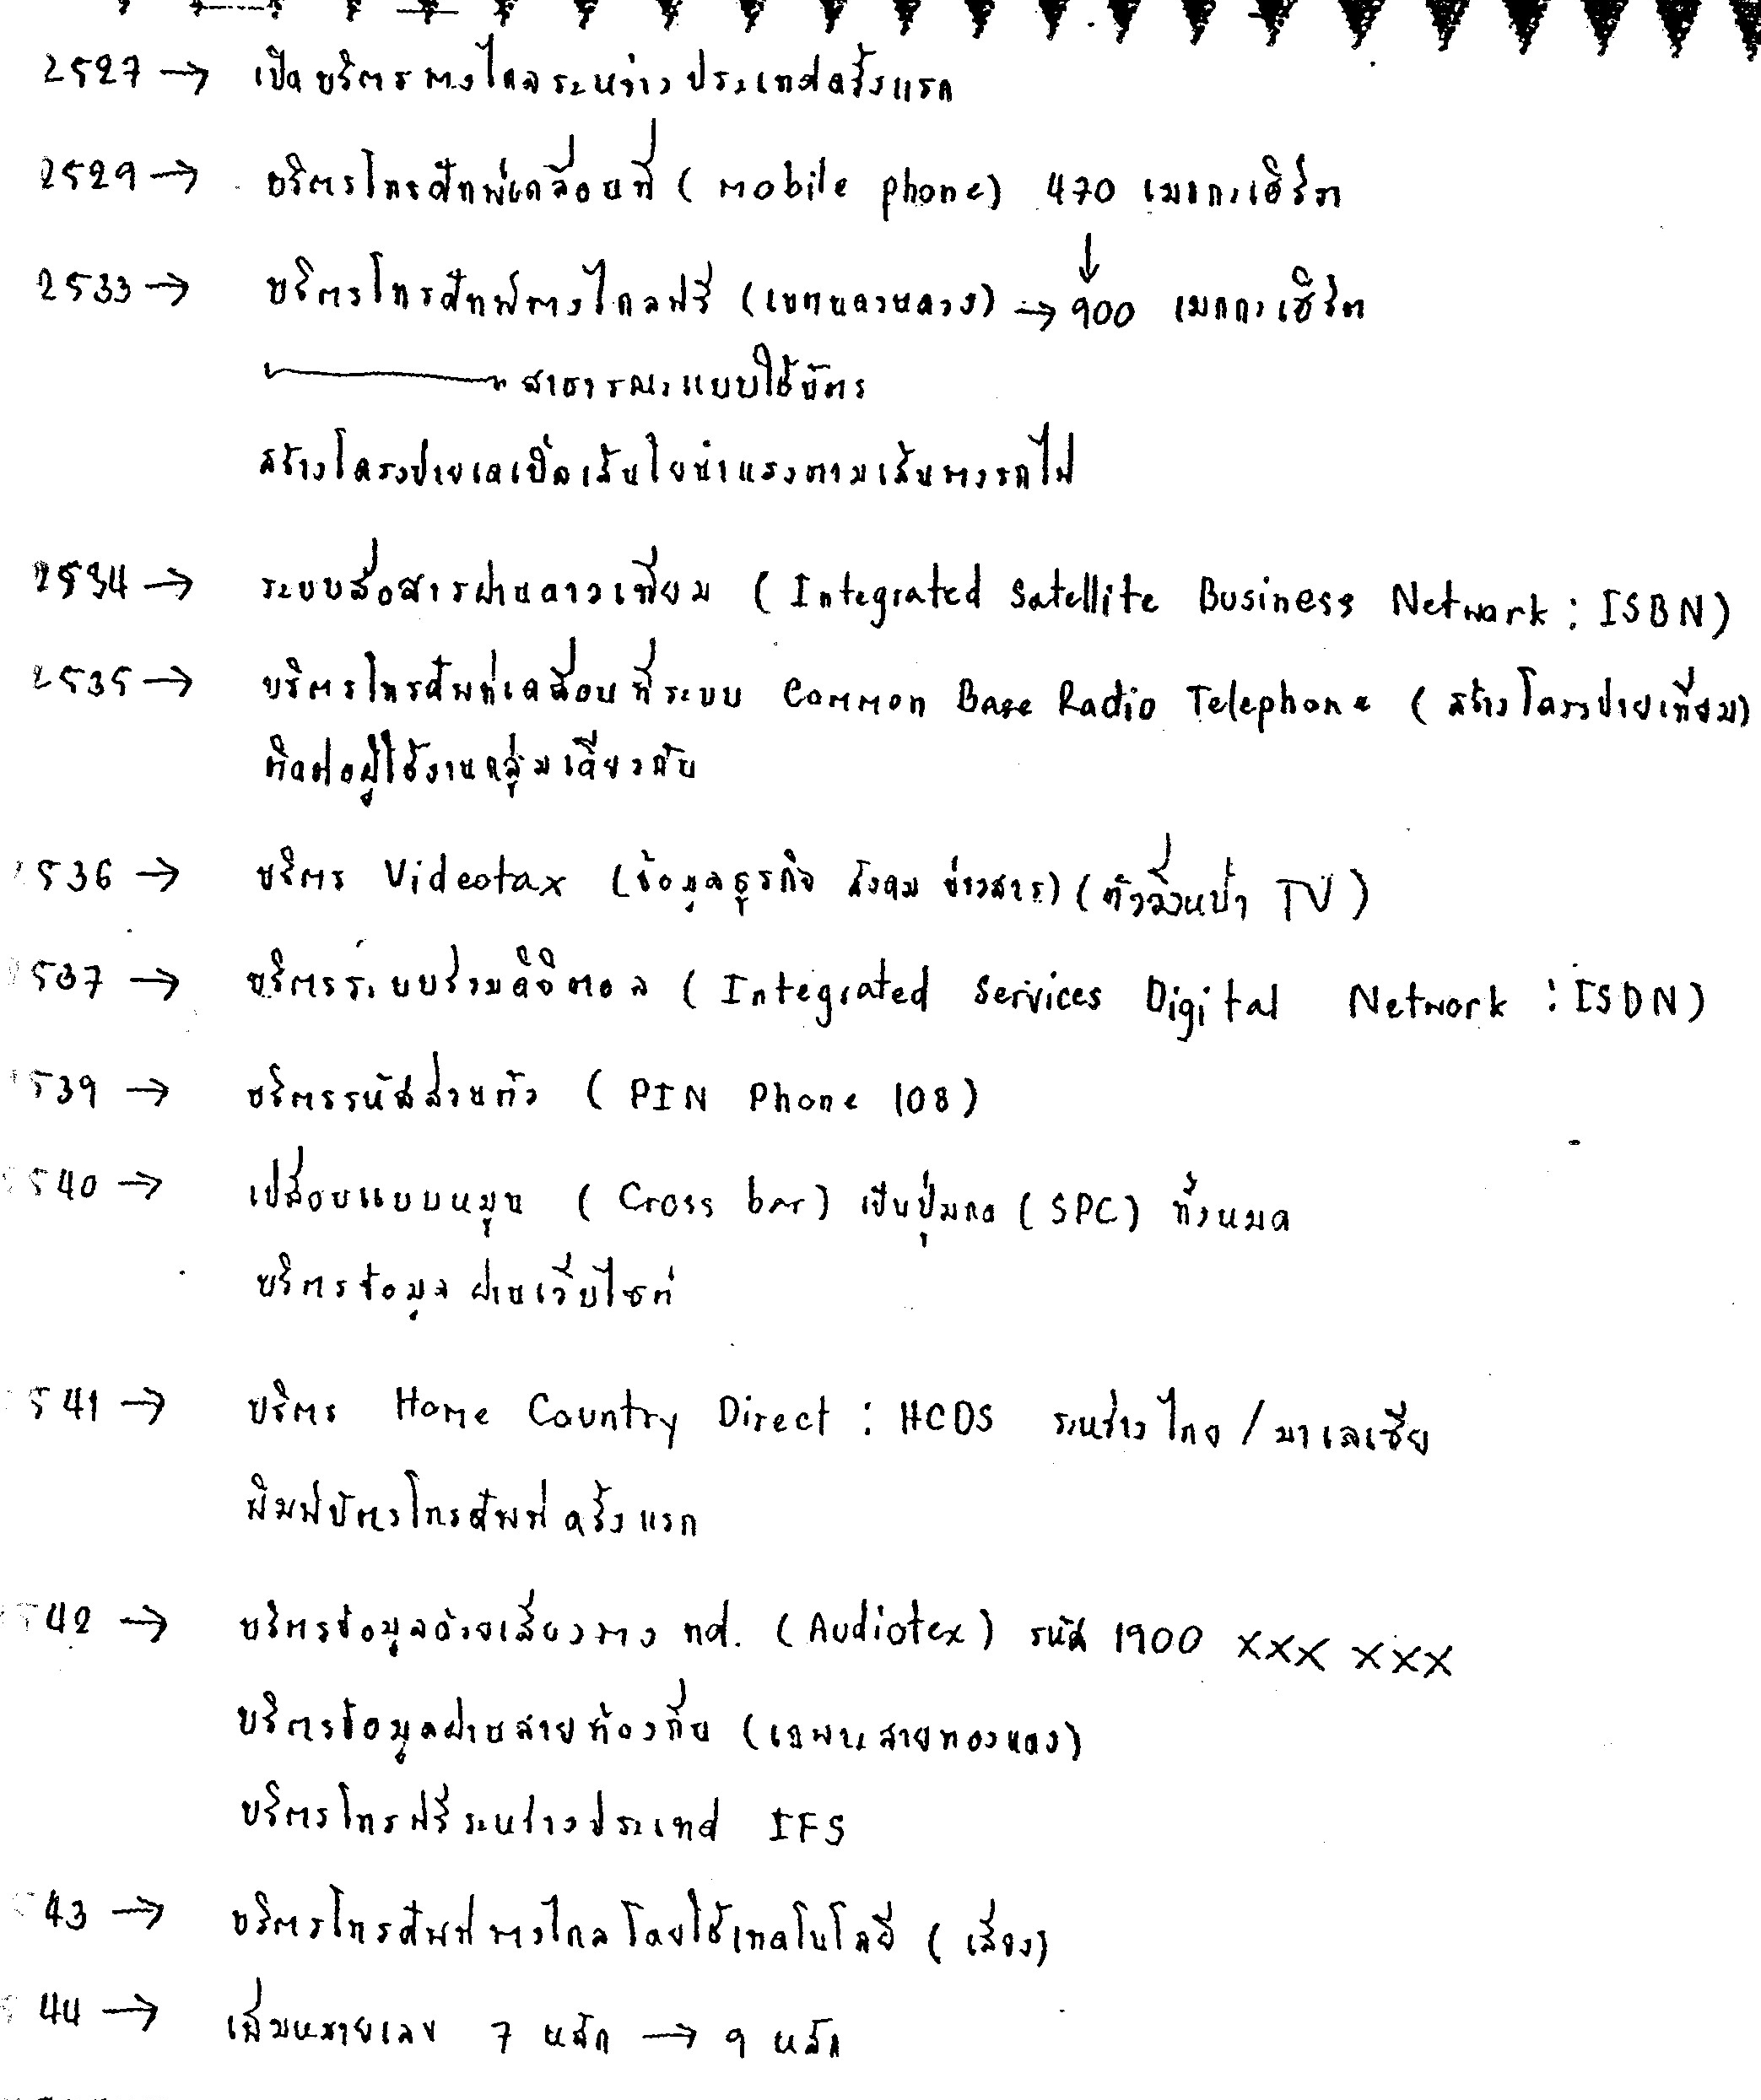 2527 → เปิดบริการทางไกลระหว่างประเทศครั้งแรก
2529 → บริการโทรศัพท์เคลื่อนที่ (mobile phone) 470 เมกกะเฮิร์ต
↓
2533 → บริการโทรศัพท์ทางไกลฟรี (เขตนครหลวง) → 900 เมกกะเฮิร์ต
สาธารณะแบบใช้บัตร
สร้างโครงข่ายเคเบิ้ลเส้นใยนำแสงตามเส้นทางรถไฟ
2534 → ระบบสื่อสารผ่านดาวเทียม (Integrated Satellite Business Network : ISBN)
2535 → บริการโทรศัพท์เคลื่อนที่ระบบ Common Base Radio Telephone (สร้างโครงข่ายเทียม)
ติดต่อผู้ใช้งานกลุ่มเดียวกัน
2536 → บริการ Videotax (ข้อมูลธุรกิจ สังคม ข่าวสาร) (ตัววิ่งหน้า TV)
2537 → บริการระบบร่วมดิจิตอล (Integrated Services Digital Network : ISDN)
539 → บริการรหัสส่วนตัว (PIN Phone 108)
540 → เปลี่ยนแบบหมุน (Cross bar) เป็นปุ่มกด (SPC) ทั้งหมด
บริการข้อมูลผ่านเว็บไซต์
541 → บริการ Home Country Direct : HCDS ระหว่างไทย / มาเลเซีย
พิมพ์บัตรโทรศัพท์ครั้งแรก
542 → บริการข้อมูลด้วยเสียงทาง ทศ. (Audiotex) รหัส 1900 XXX XXX
บริการข้อมูลผ่านสายท้องถิ่น (เฉพาะสายทองแดง)
บริการโทรฟรีระหว่างประเทศ IFS
43 → บริการโทรศัพท์ทางไกลโดยใช้เทคโนโลยี (เสียง)
44 → เพิ่มหมายเลข 7 หลัก → 9 หลัก